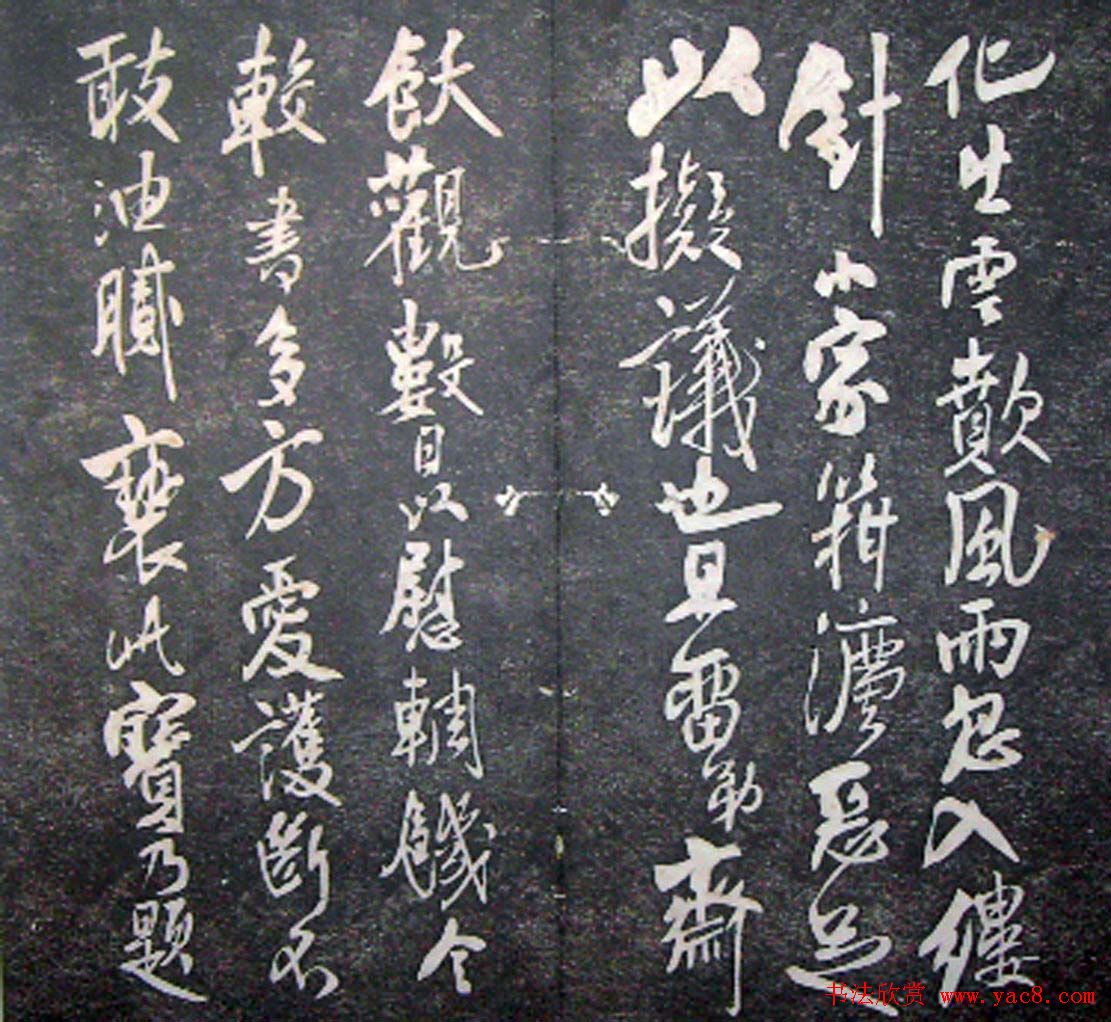 化生雲歕風雨忽入縷
針小家灋惡足
以擬議也且留勒齋
飫觀數日以慰輖饑令
較書多方愛護斷不
敢油膩褻此寶乃題
书法欣赏 www.yac8.com